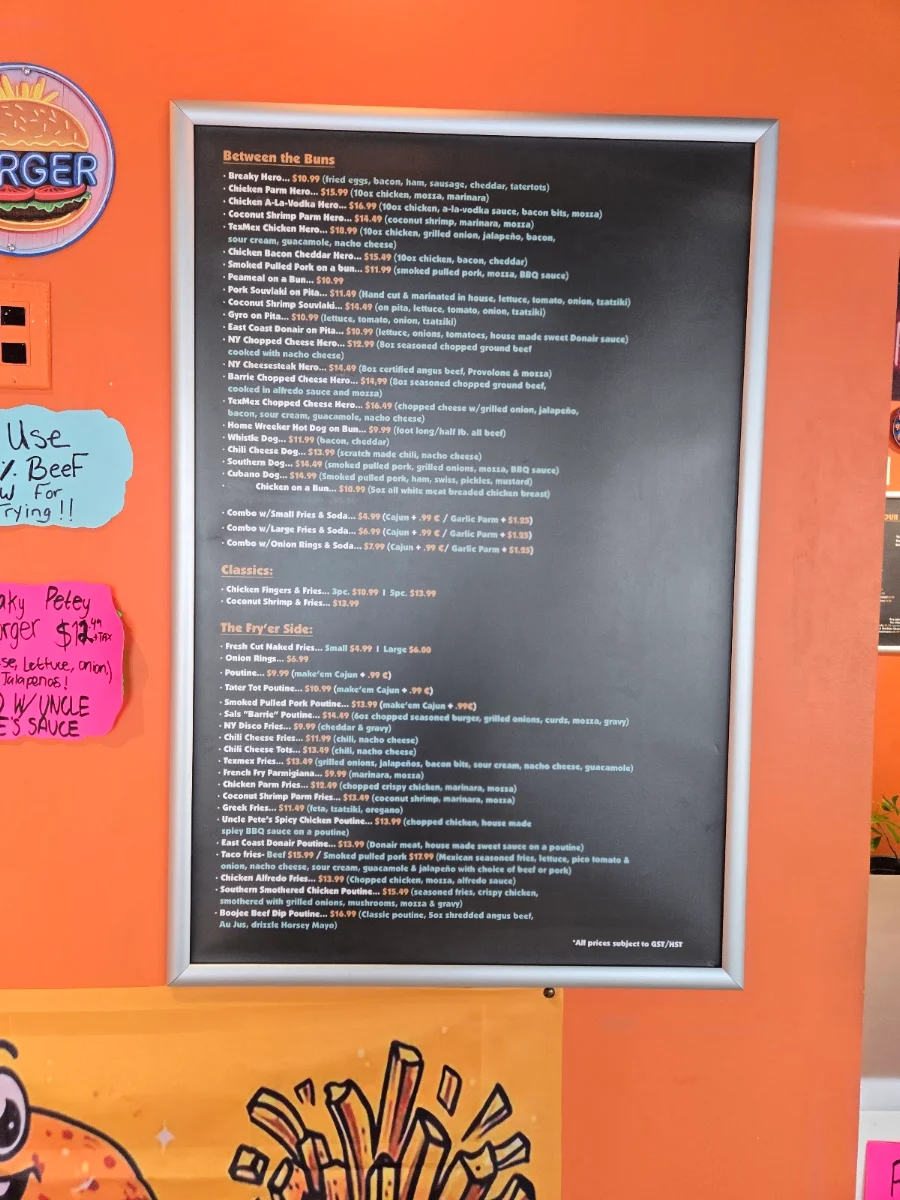 RGER
Use
% Beef
W For
Trying!!
aky Petey
rger $12.49 +TAX
se, Lettuce, onion,)
Jalapenos!
W/UNCLE
E'S SAUCE
Between the Buns
· Breaky Hero... $10.99 (fried eggs, bacon, ham, sausage, cheddar, tatertots)
· Chicken Parm Hero... $15.99 (10oz chicken, mozza, marinara)
· Chicken A-La-Vodka Hero... $16.99 (10oz chicken, a-la-vodka sauce, bacon bits, mozza)
· Coconut Shrimp Parm Hero... $14.49 (coconut shrimp, marinara, mozza)
· TexMex Chicken Hero... $18.99 (10oz chicken, grilled onion, jalapeño, bacon,
sour cream, guacamole, nacho cheese)
· Chicken Bacon Cheddar Hero... $15.49 (10oz chicken, bacon, cheddar)
· Smoked Pulled Pork on a bun... $11.99 (smoked pulled pork, mozza, BBQ sauce)
· Peameal on a Bun... $10.99
· Pork Souvlaki on Pita... $11.49 (Hand cut & marinated in house, lettuce, tomato, onion, tzatziki)
· Coconut Shrimp Souvlaki... $14.49 (on pita, lettuce, tomato, onion, tzatziki)
· Gyro on Pita... $10.99 (lettuce, tomato, onion, tzatziki)
· East Coast Donair on Pita... $10.99 (lettuce, onions, tomatoes, house made sweet Donair sauce)
· NY Chopped Cheese Hero... $12.99 (8oz seasoned chopped ground beef
cooked with nacho cheese)
· NY Cheesesteak Hero... $14.49 (8oz certified angus beef, Provolone & mozza)
· Barrie Chopped Cheese Hero... $14,99 (8oz seasoned chopped ground beef,
cooked in alfredo sauce and mozza)
· TexMex Chopped Cheese Hero... $16.49 (chopped cheese w/grilled onion, jalapeño,
bacon, sour cream, guacamole, nacho cheese)
· Home Wrecker Hot Dog on Bun... $9.99 (foot long/half lb. all beef)
· Whistle Dog... $11.99 (bacon, cheddar)
· Chili Cheese Dog... $13.99 (scratch made chili, nacho cheese)
· Southern Dog... $14.49 (smoked pulled pork, grilled onions, mozza, BBQ sauce)
· Cubano Dog... $14.99 (Smoked pulled pork, ham, swiss, pickles, mustard)
· Chicken on a Bun... $10.99 (5oz all white meat breaded chicken breast)
· Combo w/Small Fries & Soda... $4.99 (Cajun + .99 ¢ / Garlic Parm + $1.25)
· Combo w/Large Fries & Soda... $6.99 (Cajun + .99 ¢ / Garlic Parm + $1.25)
· Combo w/Onion Rings & Soda... $7.99 (Cajun + .99 ¢/ Garlic Parm + $1.25)
Classics:
· Chicken Fingers & Fries... 3pc. $10.99 I 5pc. $13.99
· Coconut Shrimp & Fries... $13.99
The Fry'er Side:
· Fresh Cut Naked Fries... Small $4.99 I Large $6.00
· Onion Rings... $6.99
· Poutine... $9.99 (make'em Cajun + .99 ¢)
· Tater Tot Poutine... $10.99 (make'em Cajun + .99 ¢)
· Smoked Pulled Pork Poutine... $13.99 (make'em Cajun + .99¢)
· Sals "Barrie" Poutine... $14.49 (6oz chopped seasoned burger, grilled onions, curds, mozza, gravy)
· NY Disco Fries... $9.99 (cheddar & gravy)
· Chili Cheese Fries... $11.99 (chili, nacho cheese)
· Chili Cheese Tots... $13.49 (chili, nacho cheese)
· Texmex Fries... $13.49 (grilled onions, jalapeños, bacon bits, sour cream, nacho cheese, guacamole)
· French Fry Parmigiana... $9.99 (marinara, mozza)
· Chicken Parm Fries... $12.49 (chopped crispy chicken, marinara, mozza)
· Coconut Shrimp Parm Fries... $13.49 (coconut shrimp, marinara, mozza)
· Greek Fries... $11.49 (feta, tzatziki, oregano)
· Uncle Pete's Spicy Chicken Poutine... $13.99 (chopped chicken, house made
spicy BBQ sauce on a poutine)
· East Coast Donair Poutine... $13.99 (Donair meat, house made sweet sauce on a poutine)
· Taco fries- Beef $15.99 / Smoked pulled pork $17.99 (Mexican seasoned fries, lettuce, pico tomato &
onion, nacho cheese, sour cream, guacamole & jalapeño with choice of beef or pork)
· Chicken Alfredo Fries... $13.99 (Chopped chicken, mozza, alfredo sauce)
· Southern Smothered Chicken Poutine... $15.49 (seasoned fries, crispy chicken,
smothered with grilled onions, mushrooms, mozza & gravy)
· Boojee Beef Dip Poutine... $16.99 (Classic poutine, 5oz shredded angus beef,
Au Jus, drizzle Horsey Mayo)
*All prices subject to GST/HST